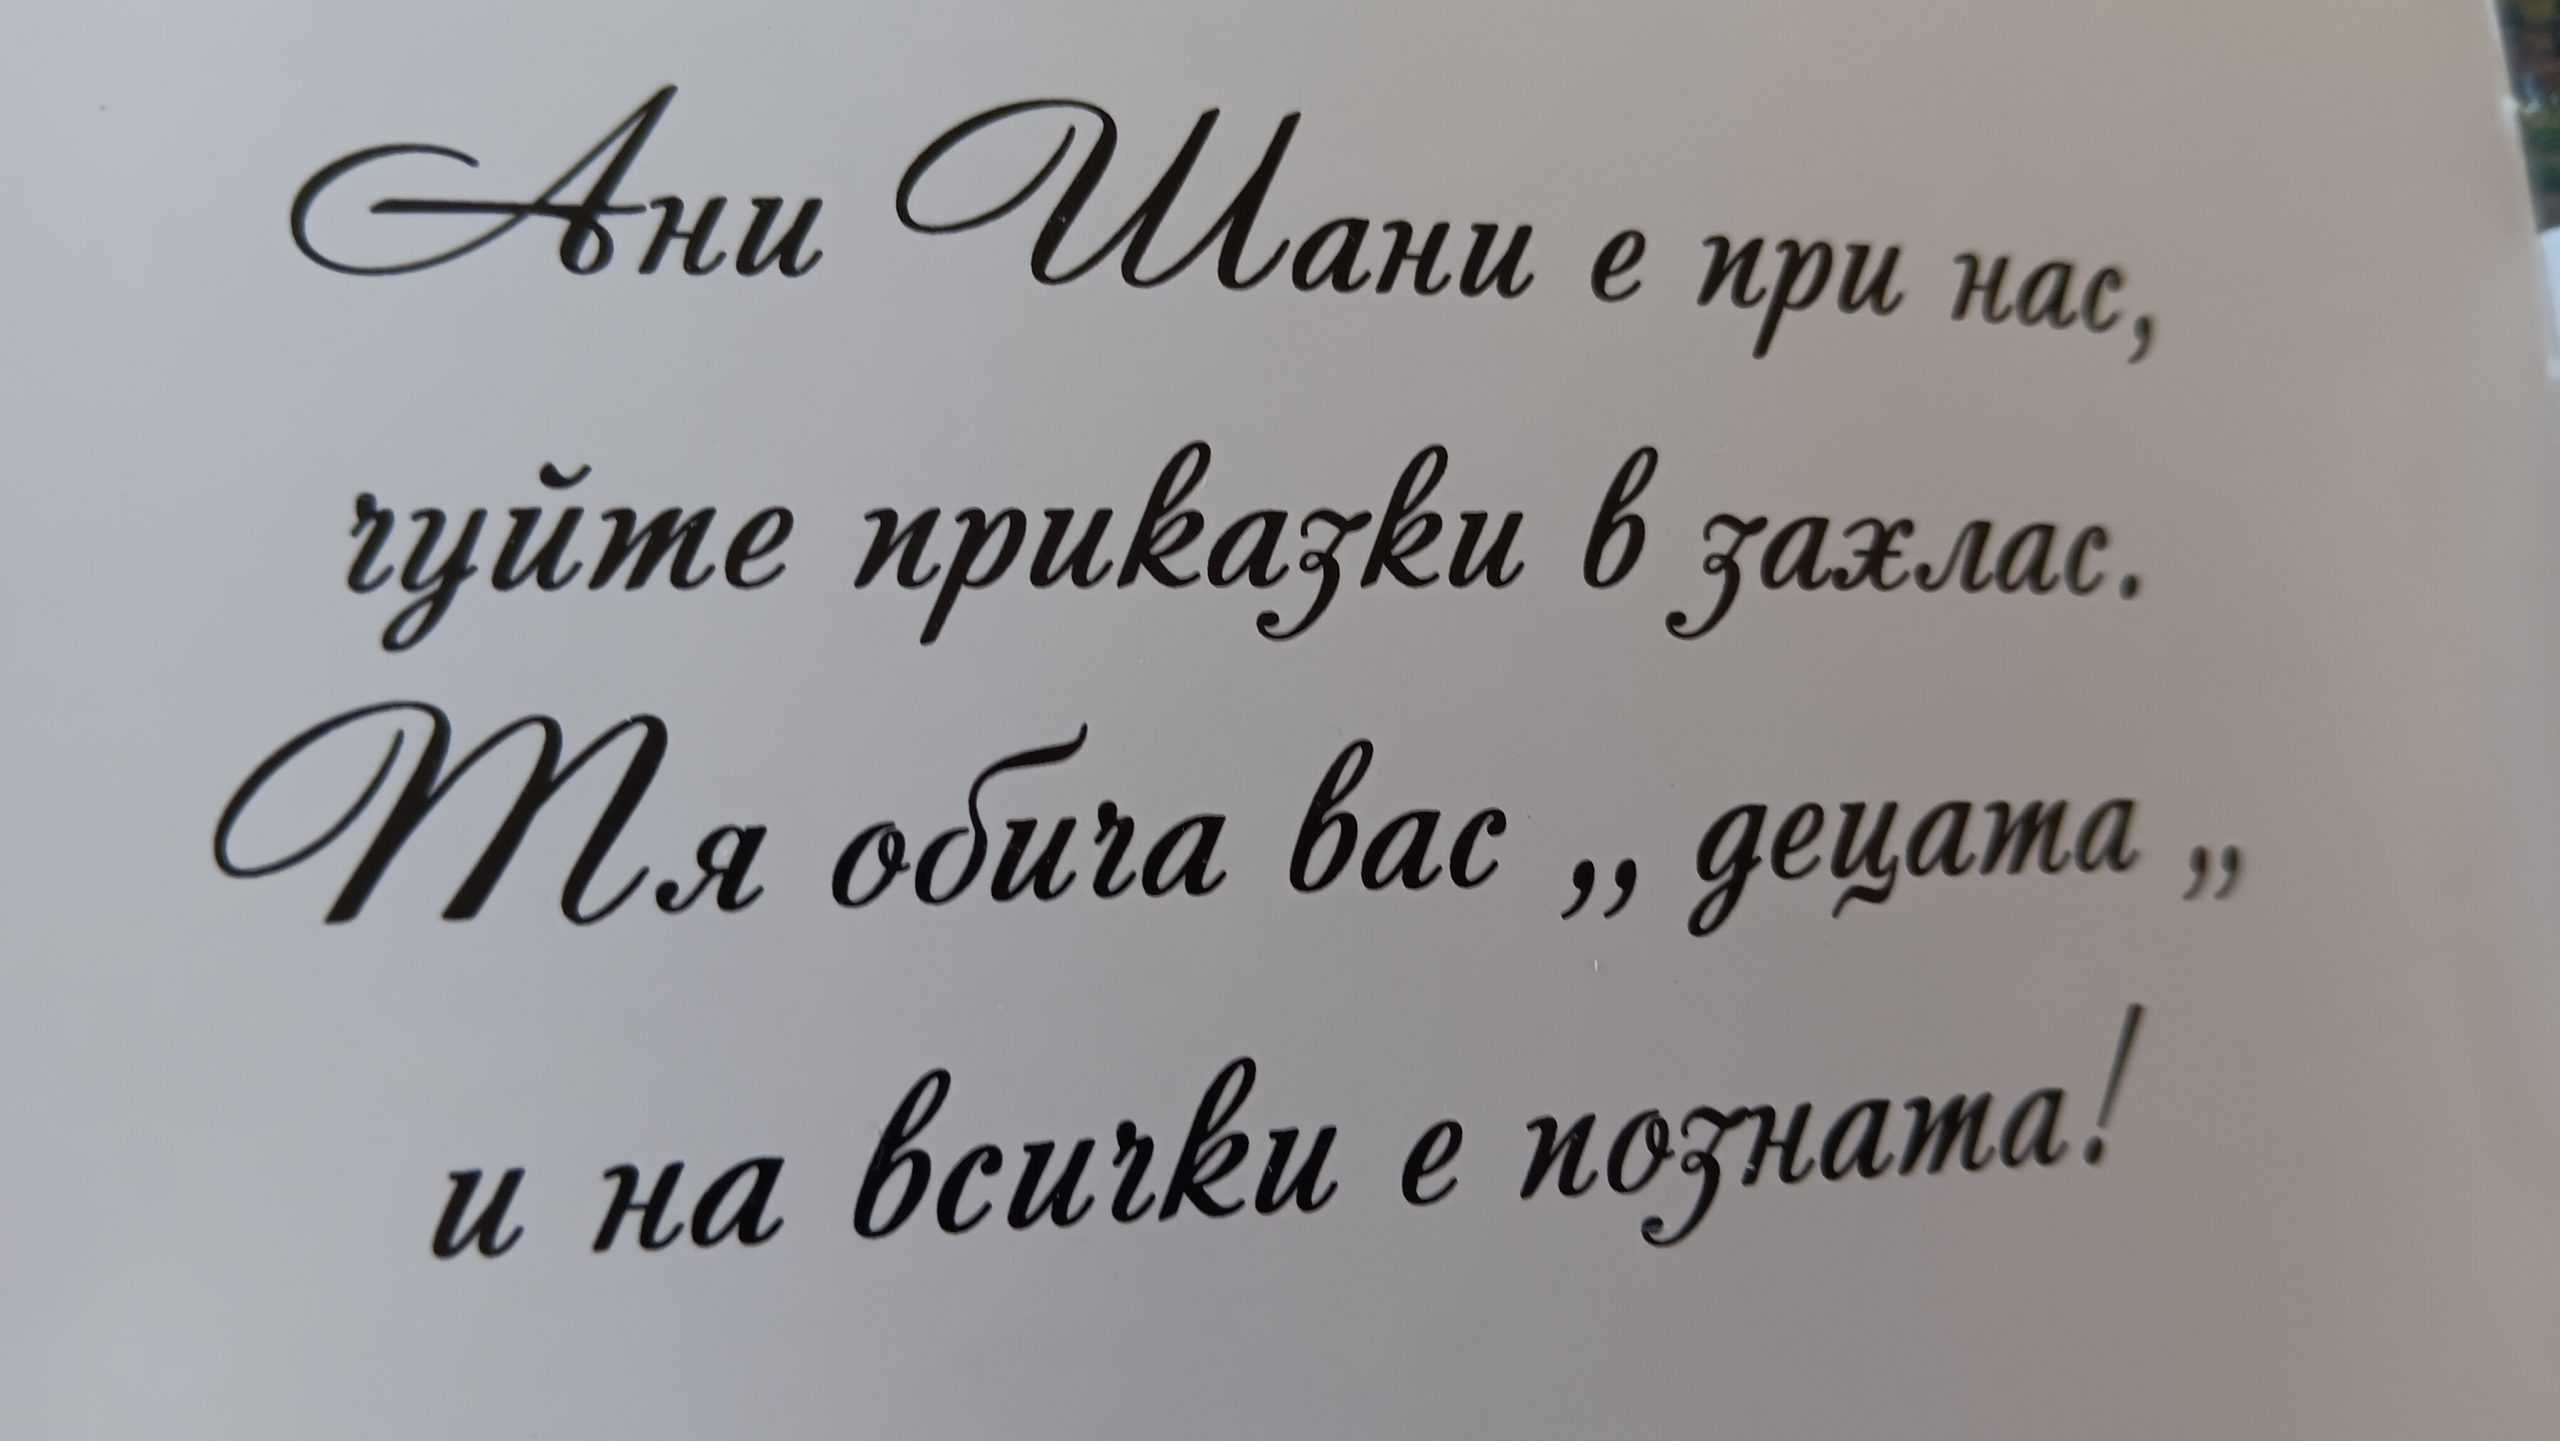 Ани Шани е при нас,
чуйте приказки в захлас.
Тя обича вас ,, децата ,,
и на всички е позната!